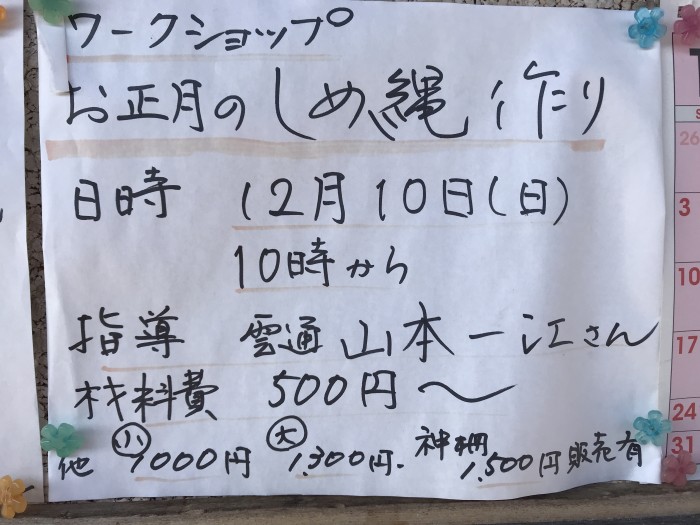 ワークショップ
お正月のしめ縄作り
日時 12月10日(日)
10時から
指導 雲通 山本一江さん
材料費 500円〜
他 小 1000円 大 1,300円. 神棚 1,500円 販売有
26
3
10
17
24
31